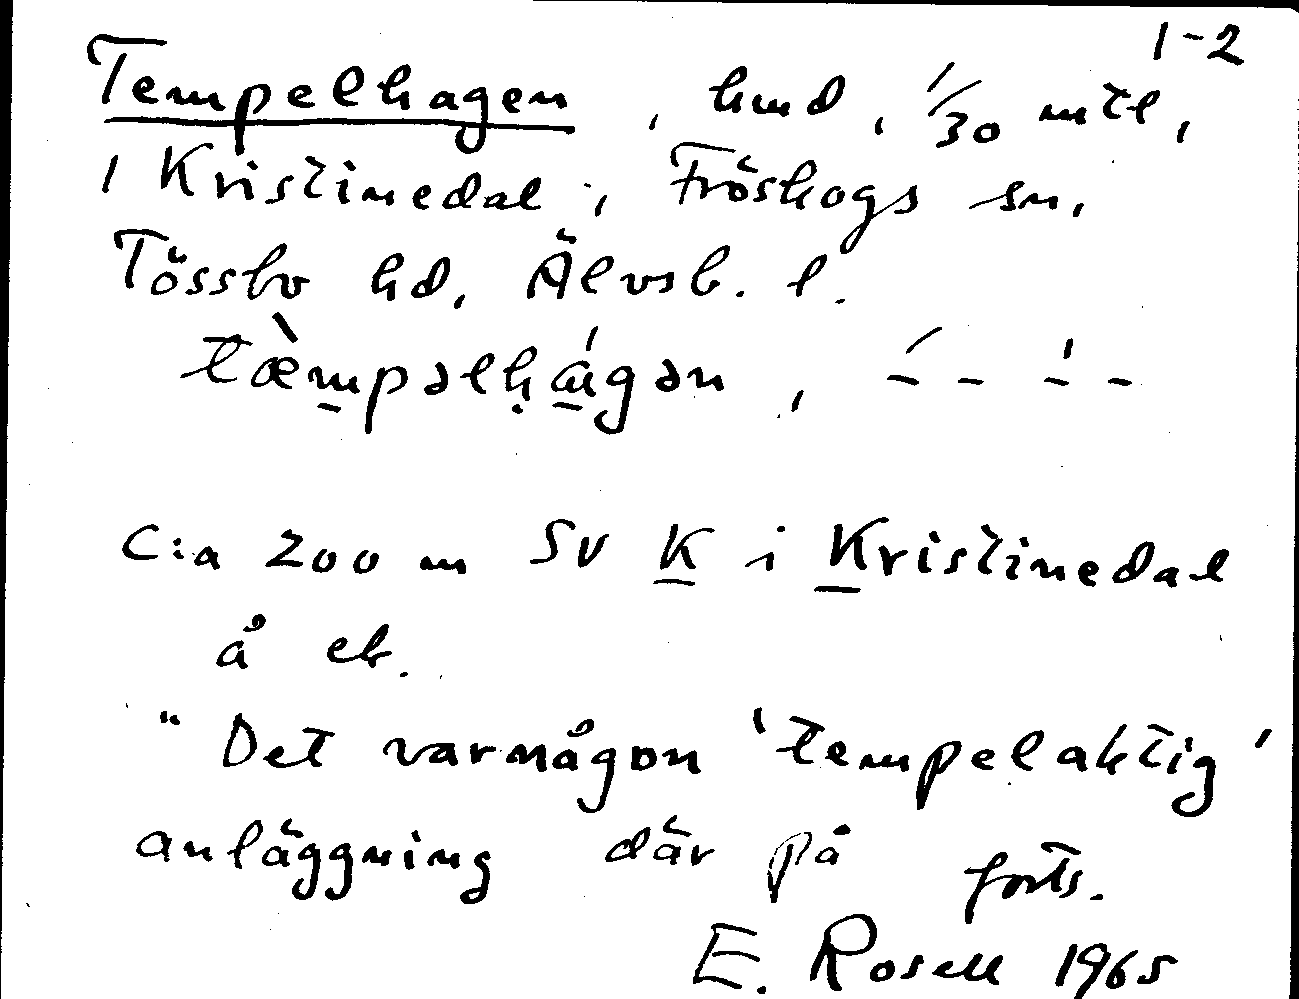 1-2
Tempelhagen, hmd, 1/30 mtl,
i Kristinedal, Fröskogs sn,
Tössbo hd, Älvsb. l.
tæ̀mpəlhágən, – – – –
C:a 200 m SV K i Kristinedal
å ek.
"Det var någon 'tempelaktig'
anläggning där på forts.
E. Rosell 1965